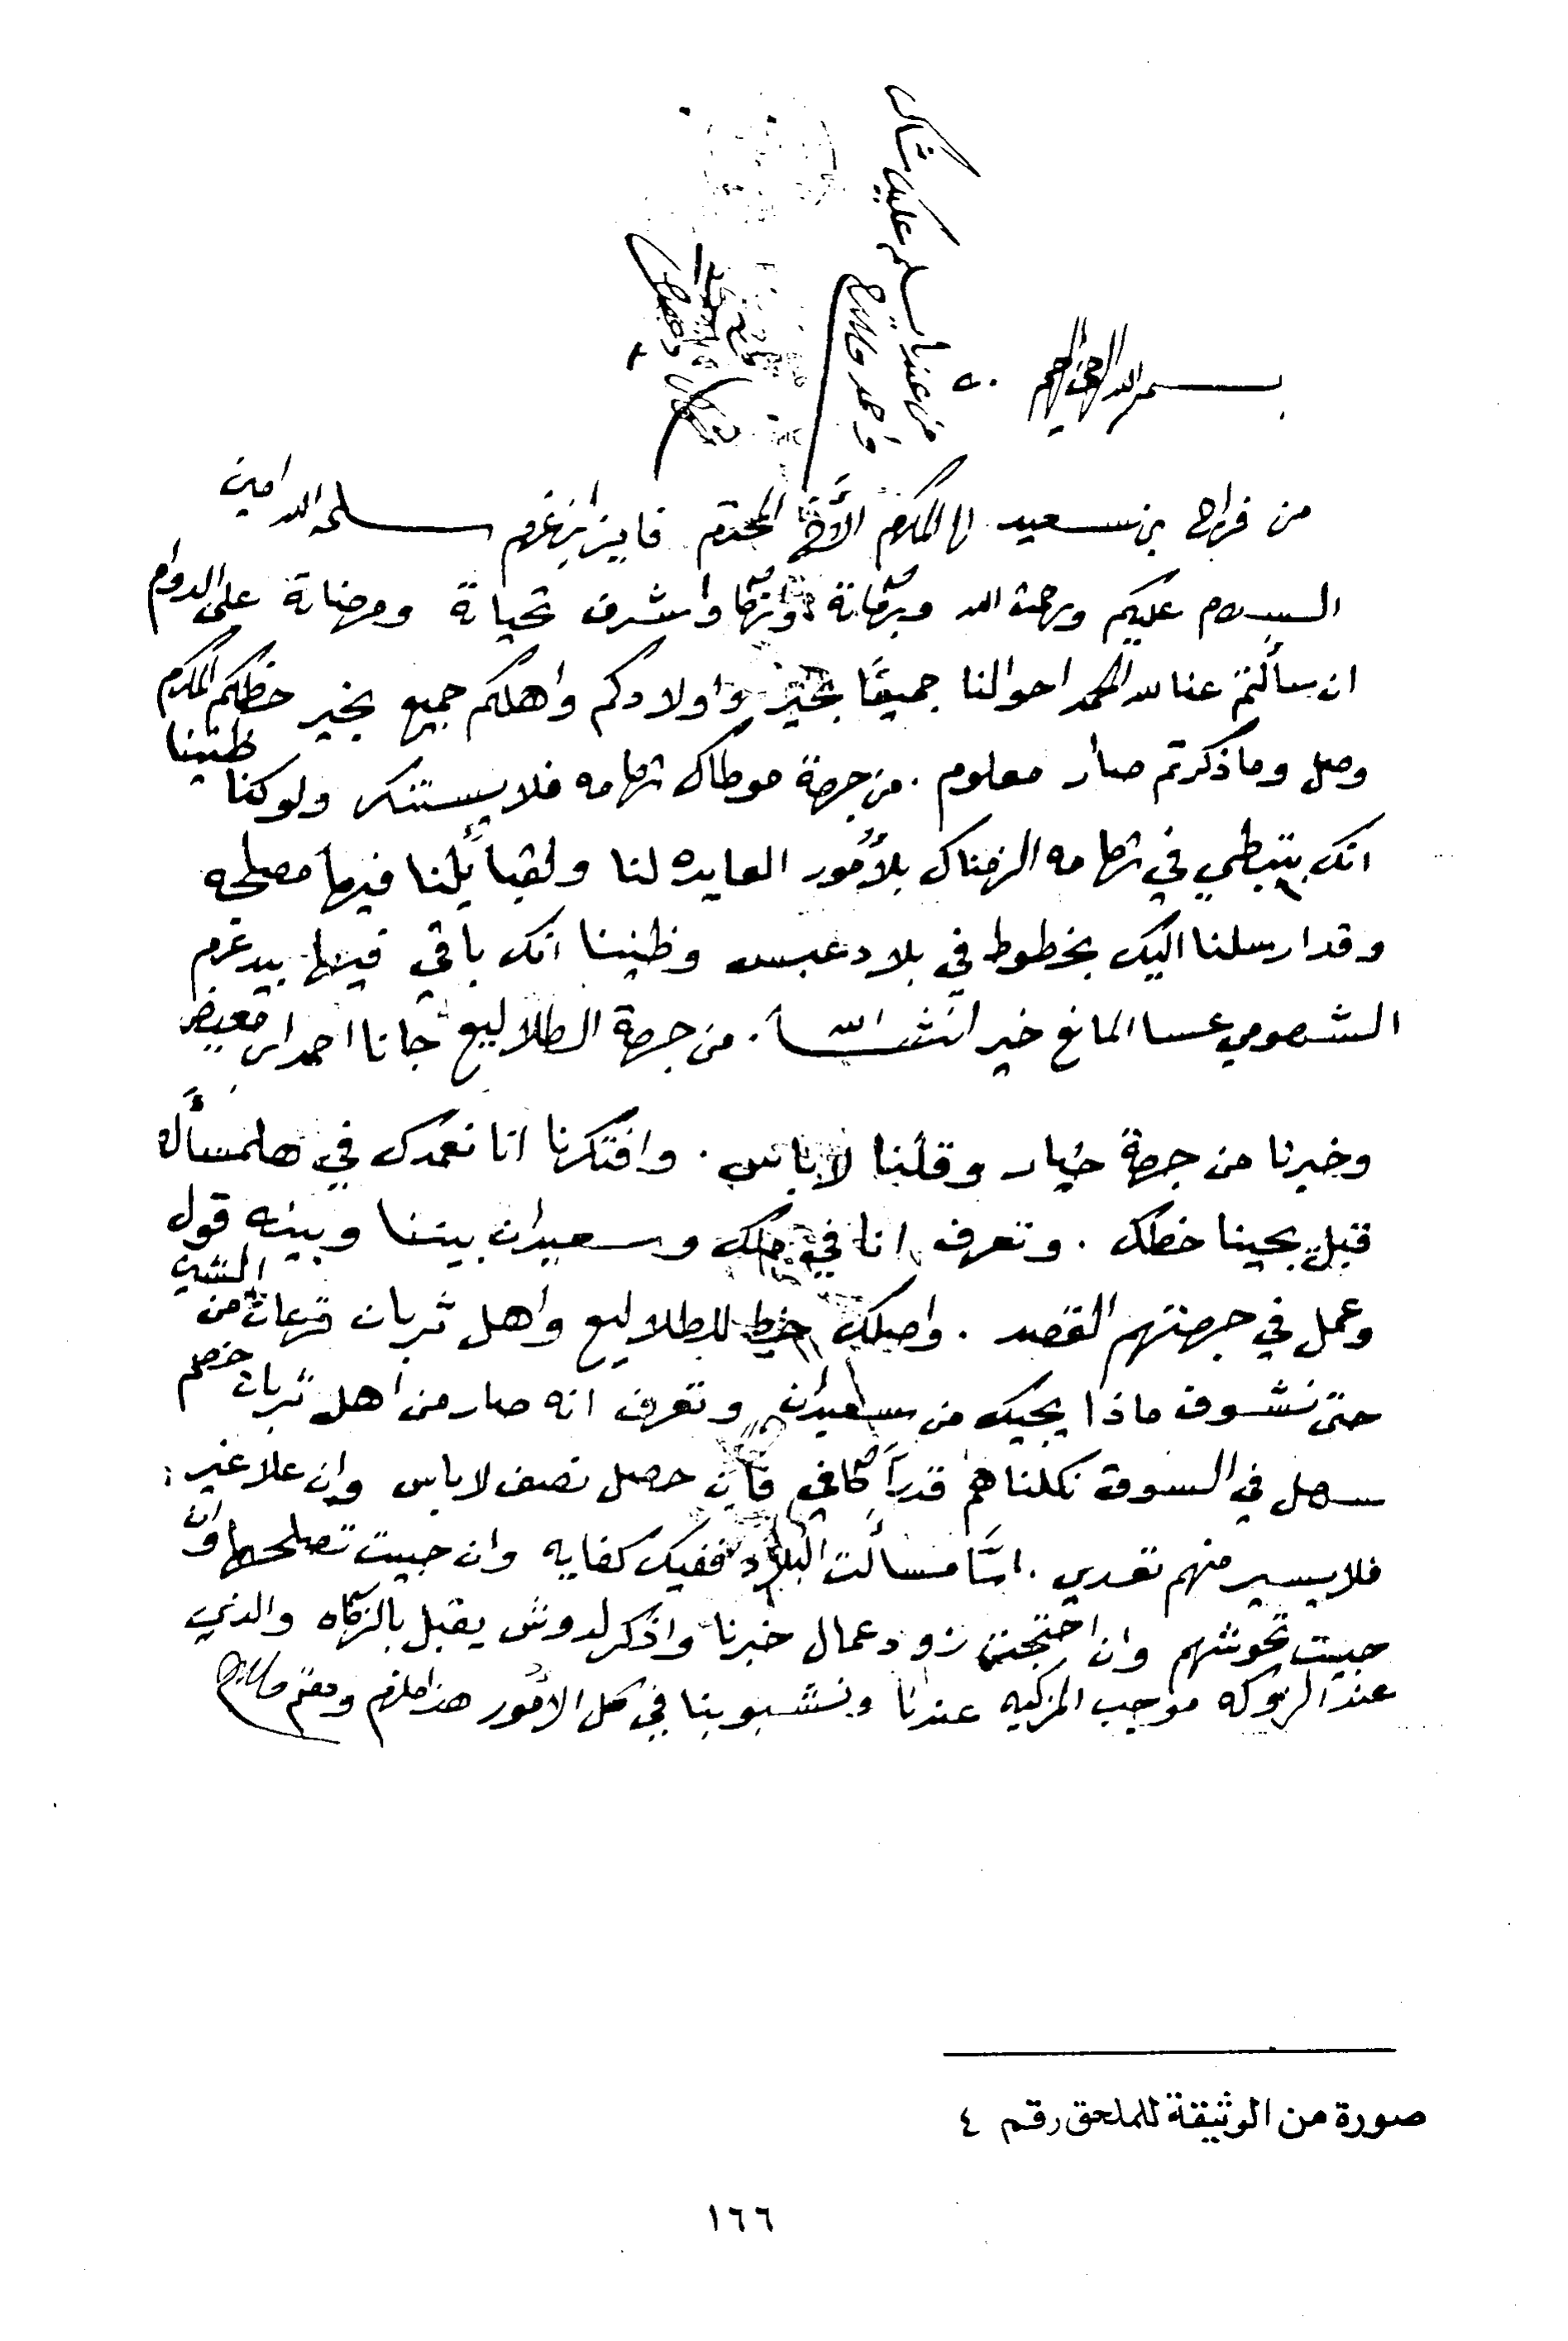 بسم الله الرحمن الرحيم
من عندنا يسلم عليك شاكر
من فراج بن سعيد الى المكرم الأخ المحترم فايز ابن غرم سلمه الله امين
السلام عليكم ورحمت الله وبركاتة وأزكا واشرف تحياتة ومرضاتة على الدوام
ان سألتم عنا لله الحمد احوالنا جميعًا بخير واولادكم واهلكم جميع بخير خطكم المكرم
وصل وما ذكرتم صار معلوم . من جهة موطاك تهامه فلا يستنكر ولو كنا ظنينا
انك بتبطي في تهامه الزمناك بلأمور العايده لنا ولقبأيلنا فيها مصلحه
وقد ارسلنا اليك بخطوط في بلاد عبس وظنينا انك باقي فيها بيد غرم
الشهومي عسا المانع خير انشا الله . من جهة الطلاليع جانا احمد ابن معيض
وخبرنا من جهة خيار وقلنا لا باس . وافتكرنا انا نعمدك في هلمسأله
قبل يجينا خطك . وتعرف انا في وسعيدان بيننا وبينه قول
وعمل في جهتهم القصد . واصلك خط للطلاليع واهل ثربان من الشين
حتى نشوف ماذا يجيك من سعيدان وتعرف انه صار من اهل ثربان خصم
سهل في السوق نكلناهم قدرًا كافي فان حصل نصف لا باس وان علا غير
فلا يسير منهم تعدي . امّا مسألت البلاد ففيك كفايه وان حبيت تصلحها وان
حبيت تحوشهم وان احتجت زود عمال خبرنا واذكر لدوش يقبل بالزكاه والذي
عند الربوكه موجب المزكيه عندنا ونشبو بنا في كل الأمور هذا ملزم ودمتم
صورة من الوثيقة للملحق رقم ٤
١٦٦